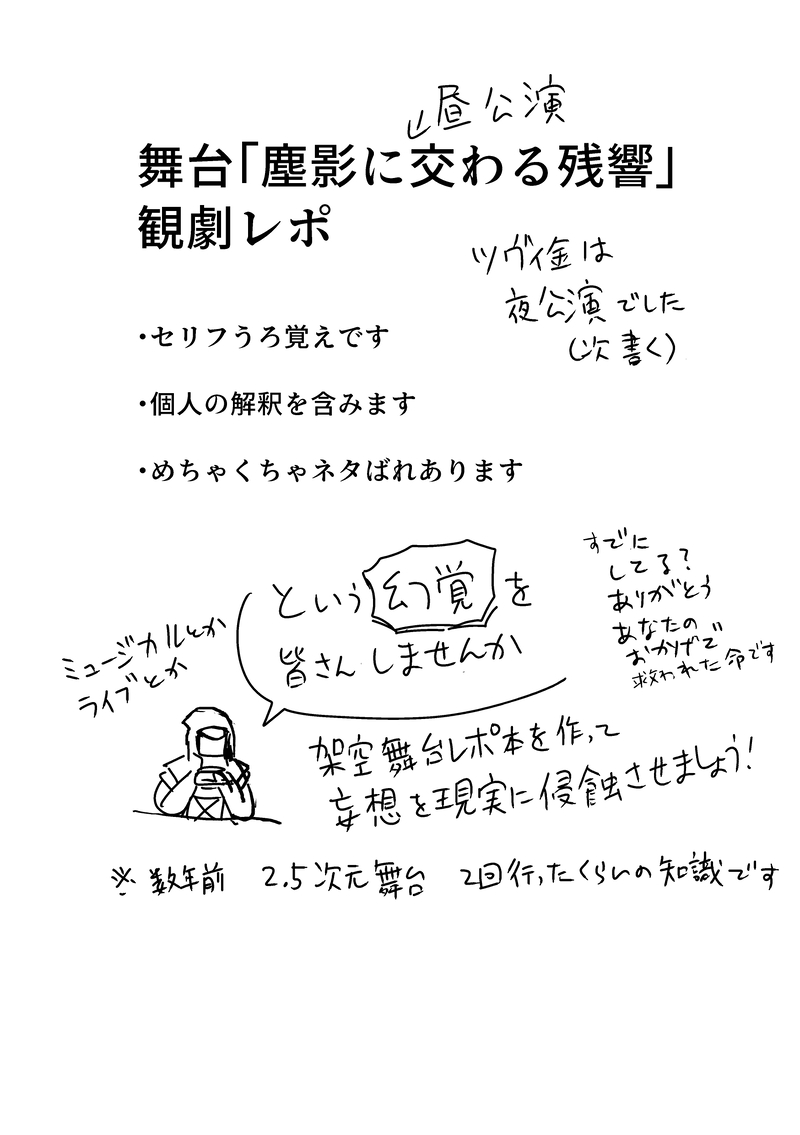 昼公演
舞台「塵影に交わる残響」
観劇レポ
ツヴィ金は
夜公演でした
(次書く)
・セリフうろ覚えです
・個人の解釈を含みます
・めちゃくちゃネタばれあります
という幻覚を
皆さんしませんか
すでに
してる?
ありがとう
あなたの
おかげで
救われた命です
ミュージカルとか
ライブとか
架空舞台レポ本を作って
妄想を現実に侵蝕させましょう!
※数年前 2.5次元舞台 2回行ったくらいの知識です